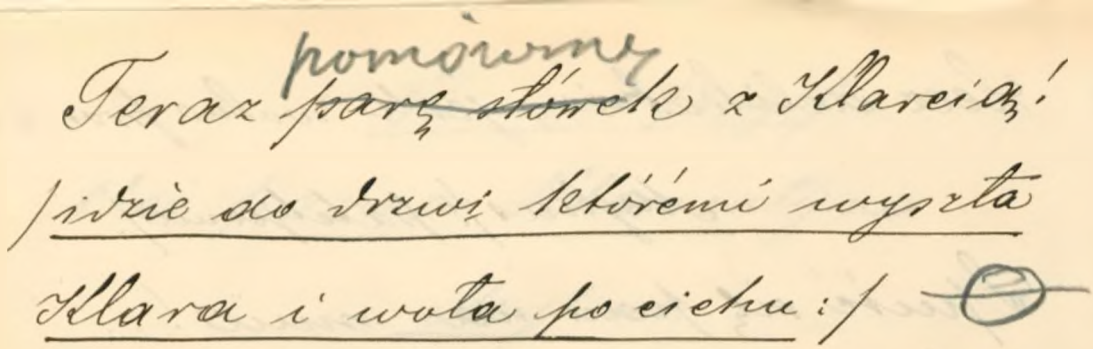 pomówimy
Teraz parę słówek z Klarcią!
/idzie do drzwi którémi wyszła
Klara i woła po cichu:/